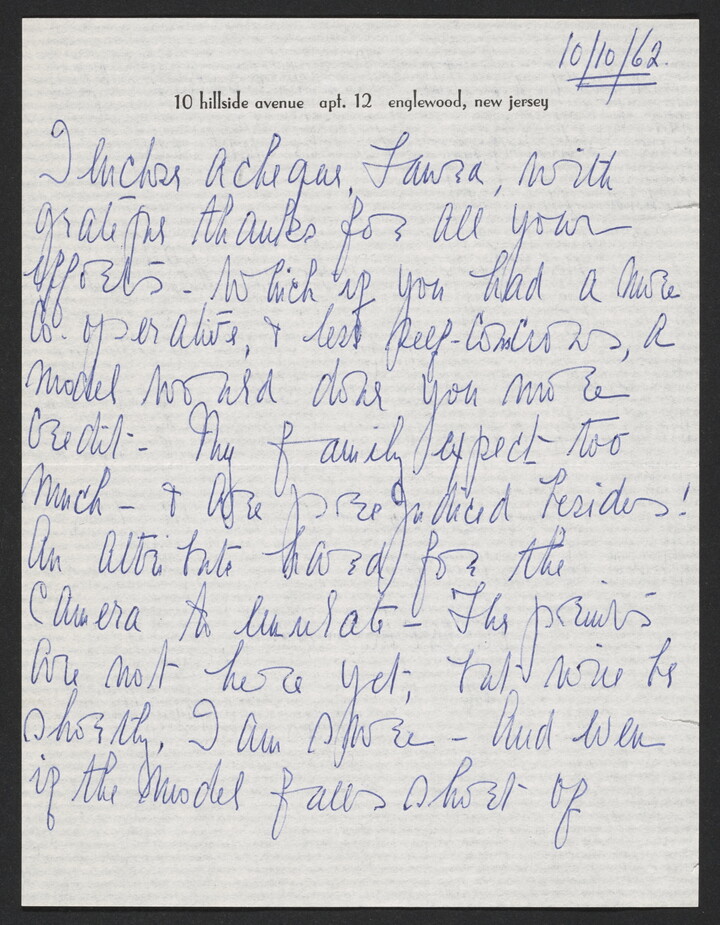 10/10/62.
10 hillside avenue apt. 12 englewood, new jersey
I enclose a cheque, Laura, with
grateful thanks for all your
efforts - Which if you had a more
co-operative, & less self-conscious, a
model would done you more
credit - My family expect too
much - & are prejudiced besides!
An attribute hard for the
Camera to emulate - The prints
are not here yet, but will be
shortly, I am sure - And even
if the model falls short of